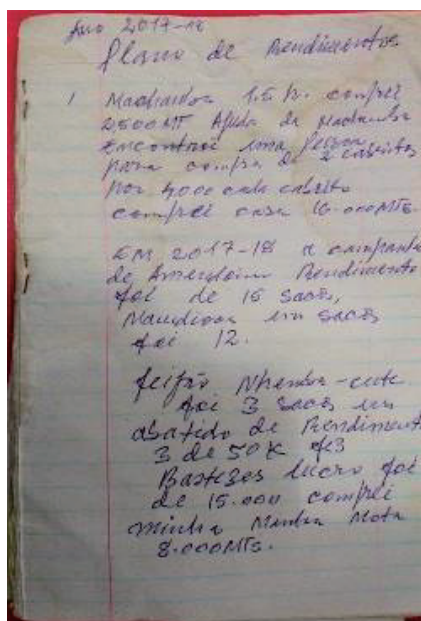 Ano 2017-18
Plano de Rendimentos
1 Machamba 1.5 h. comprei
2500MT Ajuda da Machamba
Encontrei uma pessoa
para compra de 2 cabritos
por 4000 cada cabrito
comprei casa 16.000MTs.
EM 2017-18 a campanha
de Amendoim Rendimento
foi de 15 sacos,
Mandioca em sacos
foi 12.
feijão Nhemba
foi 3 sacos em
de Rendimento
3 de 50K
lucro foi
de 15.000 comprei
minha Minha Mota
8.000MTs.